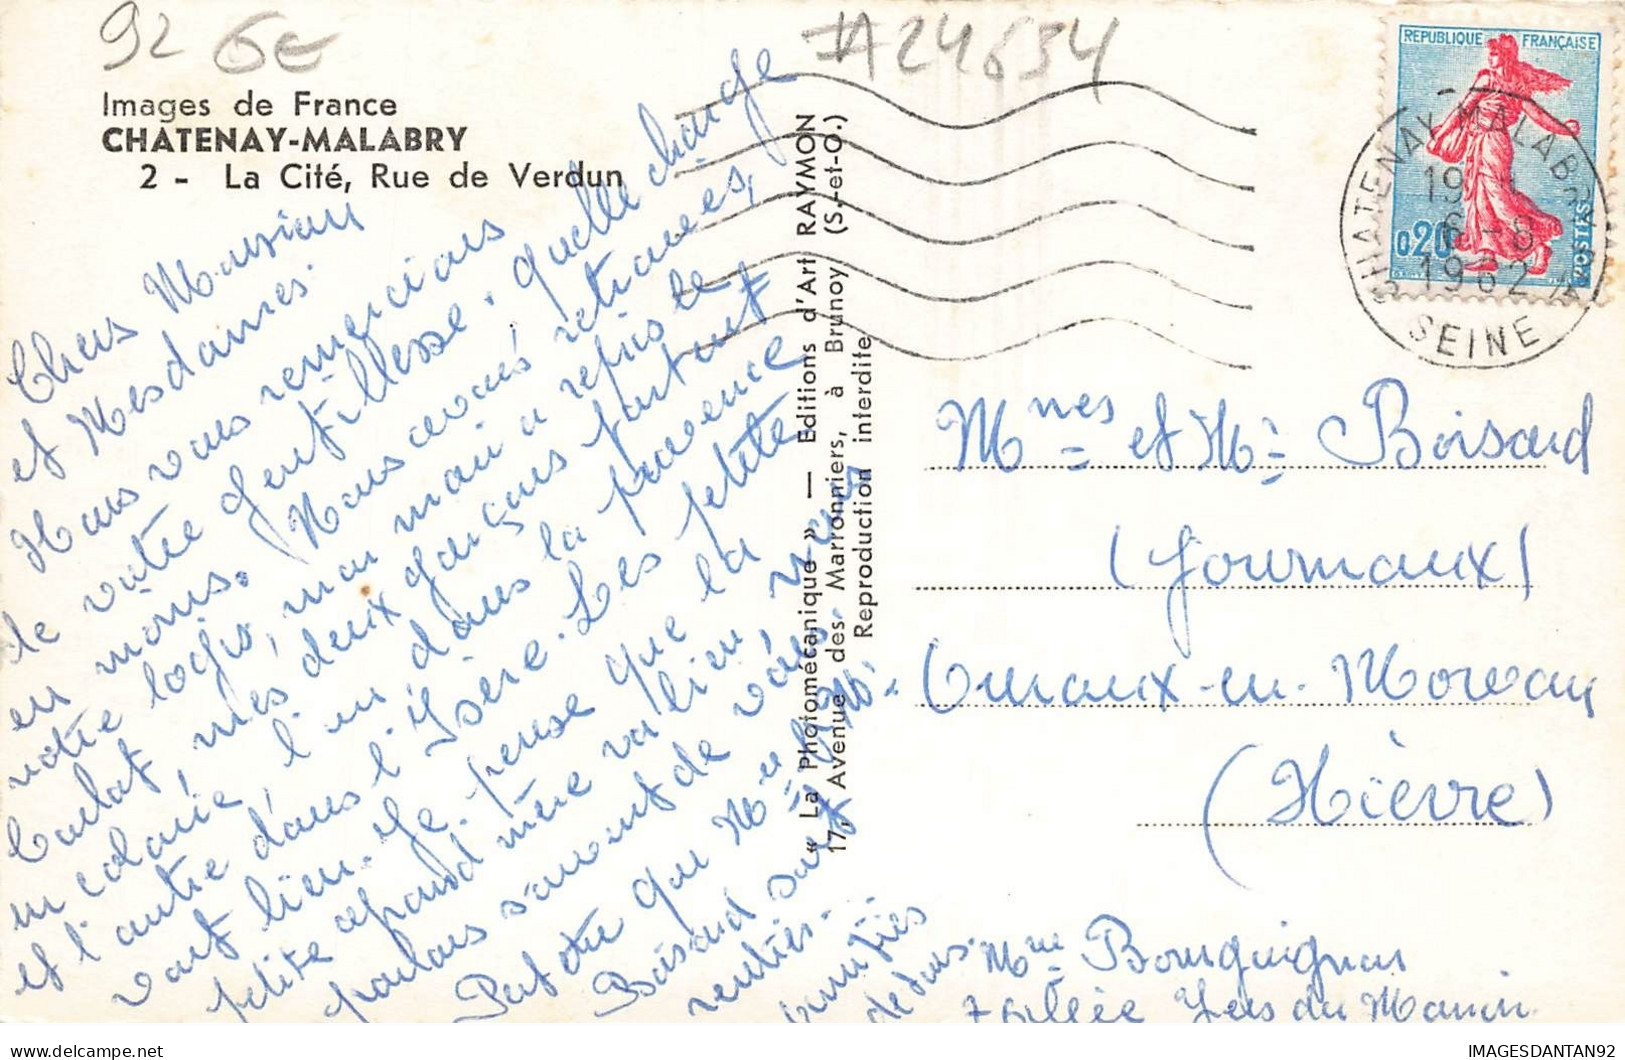 92 6€
#A24634
Images de France
CHATENAY-MALABRY
2 - La Cité, Rue de Verdun
Chers Monsieur
et Mesdames.
Nous vous remercions
de votre gentillesse. quelle change
en moins. Nous avons retrouvés,
notre logis, mon mari a repris le
boulot, mes deux garçons partent
en colonie, l'un dans la provence
et l'autre dans l'Isère. Les petits
vont bien. Je pense que la
petite grand mère va bien, nous
parlons souvent de vous.
Peut être que
Boisard
rentrés.
"La Photomécanique" — Editions d'Art RAYMON
17, Avenue des Marronniers, à Brunoy (S.-et-O.)
Reproduction interdite
REPUBLIQUE FRANÇAISE
0,20
POSTES
CHATENAY-MALABRY
6-8
1962
SEINE
Mmes et Mr Boisard
(Journaux)
Ouroux-en-Morvan
(Nièvre)
Mme Bourguignon
7 allée
IMAGESDANTAN92